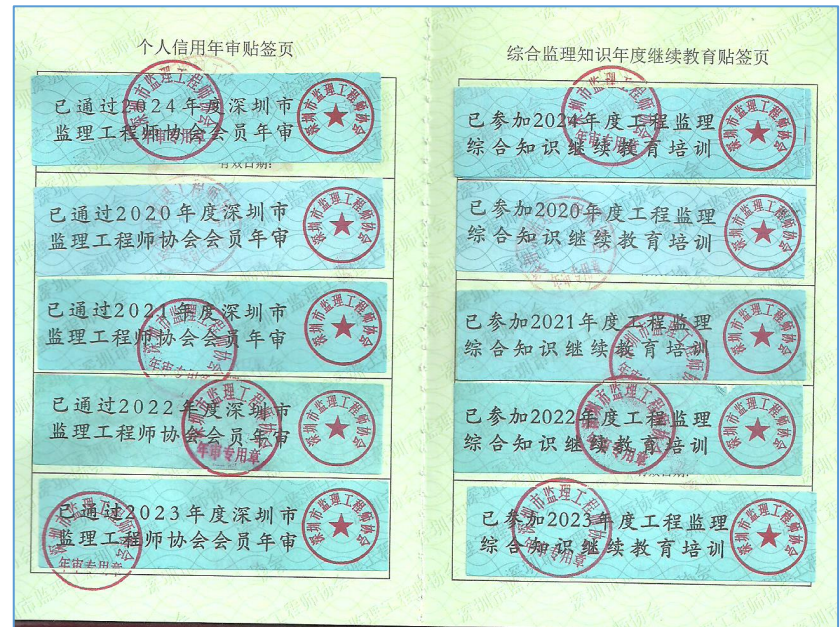 个人信用年审贴签页
已通过2024年度深圳市
监理工程师协会会员年审
深圳市监理工程师协会
年审专用章
有效日期:
已通过2020年度深圳市
监理工程师协会会员年审
深圳市监理工程师协会
已通过2021年度深圳市
监理工程师协会会员年审
深圳市监理工程师协会
年审专用章
已通过2022年度深圳市
监理工程师协会会员年审
深圳市监理工程师协会
年审专用章
已通过2023年度深圳市
监理工程师协会会员年审
深圳市监理工程师协会
年审专用章
综合监理知识年度继续教育贴签页
已参加2024年度工程监理
综合知识继续教育培训
深圳市监理工程师协会
年审专用章
已参加2020年度工程监理
综合知识继续教育培训
深圳市监理工程师协会
年审专用章
已参加2021年度工程监理
综合知识继续教育培训
深圳市监理工程师协会
已参加2022年度工程监理
综合知识继续教育培训
深圳市监理工程师协会
年审专用章
已参加2023年度工程监理
综合知识继续教育培训
深圳市监理工程师协会